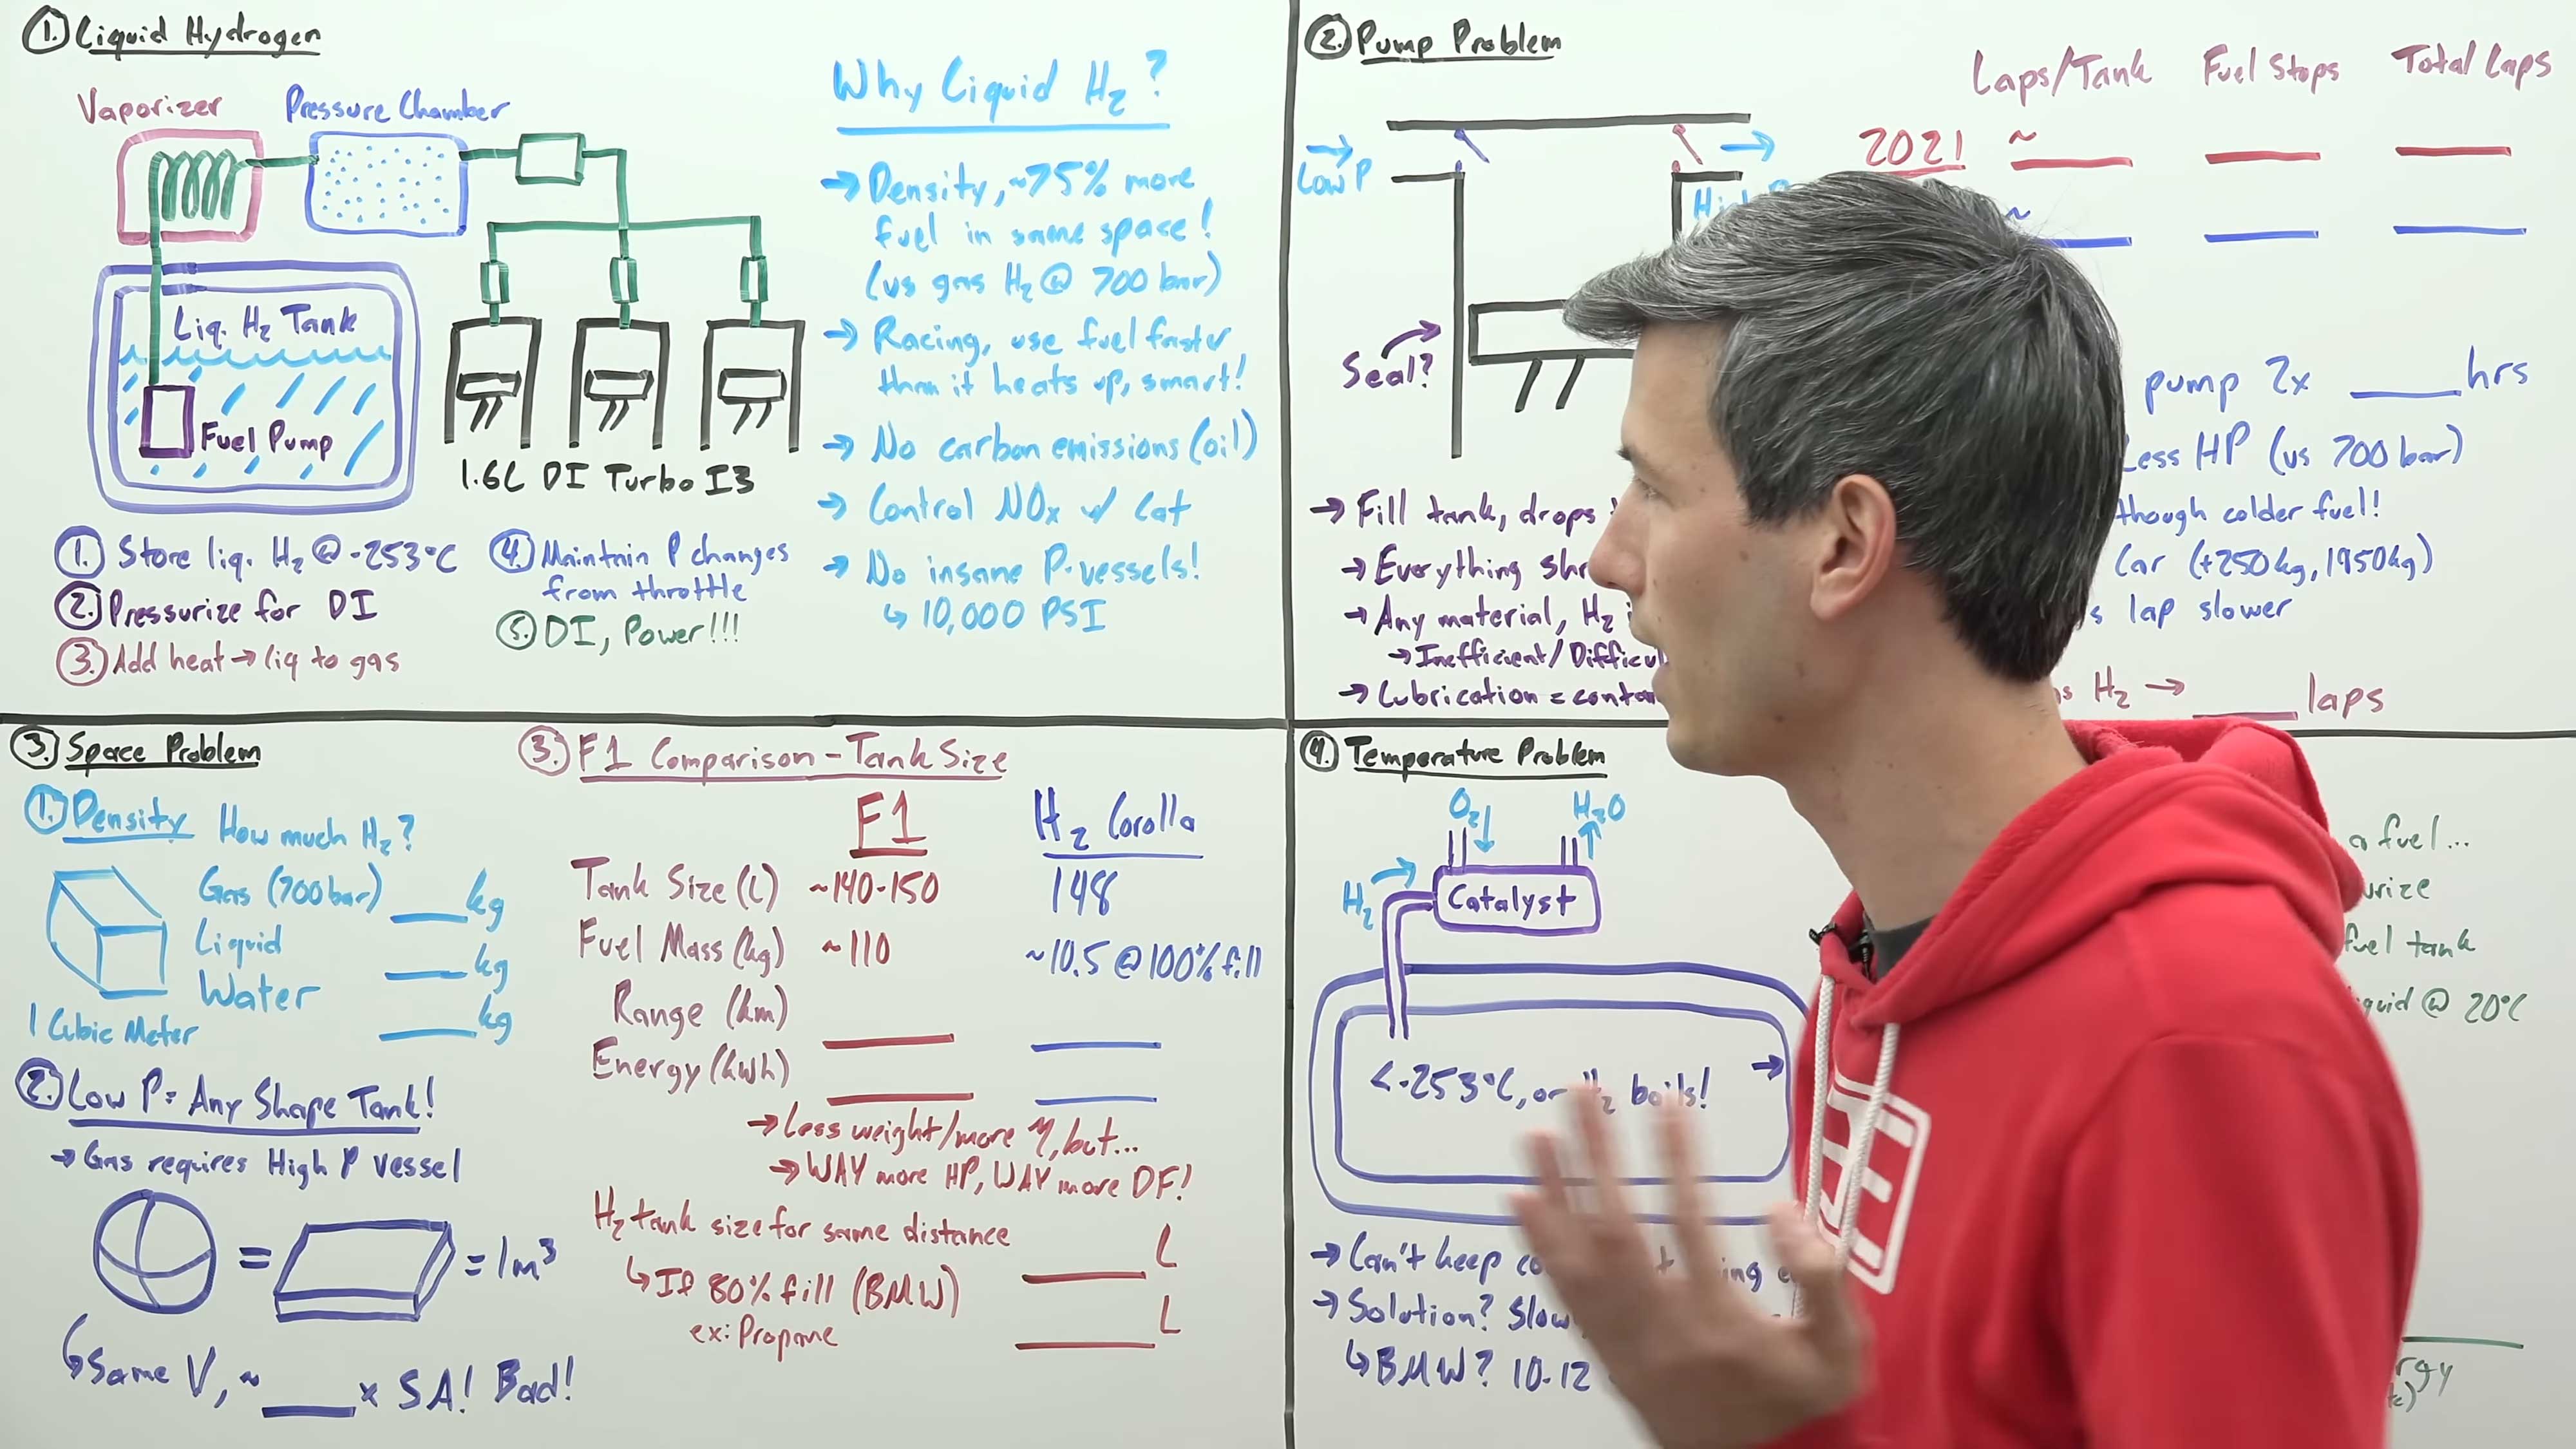 1. Liquid Hydrogen
Vaporizer
Pressure Chamber
Liq. H2 Tank
Fuel Pump
1.6L DI Turbo I3
1. Store liq. H2 @ -253°C
2. Pressurize for DI
3. Add heat → liq to gas
4. Maintain P changes
from throttle
5. DI, Power!!!
Why Liquid H2?
→ Density, ~75% more
fuel in same space!
(vs gas H2 @ 700 bar)
→ Racing, use fuel faster
than it heats up, smart!
→ No carbon emissions (oil)
→ Control NOx w/ Cat
→ No insane P-vessels!
↳ 10,000 PSI
2. Pump Problem
Laps/Tank Fuel Stops Total Laps
2021 ~
~
Low P
Seal?
→ Fill tank, drops
→ Everything
→ Any material, H2
→ Inefficient/
→ Lubrication =
pump 2x ____ hrs
Less HP (vs 700 bar)
though colder fuel!
Car (+250kg, 1950kg)
lap slower
H2 → ____ laps
3. Space Problem
1. Density How much H2?
Gas (700 bar) ____ kg
Liquid ____ kg
Water ____ kg
1 Cubic Meter
2. Low P = Any Shape Tank!
→ Gas requires High P vessel
= = 1m³
↳ Same V, ~ ____ x SA! Bad!
3. F1 Comparison - Tank Size
F1 H2 Corolla
Tank Size (L) ~140-150 148
Fuel Mass (kg) ~110 ~10.5 @ 100% fill
Range (km)
Energy (kWh)
→ Less weight/more η, but...
→ WAY more HP, WAY more DF!
H2 tank size for same distance ____ L
↳ If 80% fill (BMW) ____ L
ex: Propane
4. Temperature Problem
O2 H2O
H2
Catalyst
<-253°C, or H2 boils!
→ Can't keep
→ Solution? Slow
↳ BMW? 10-12
a fuel...
fuel tank
@ 20°C